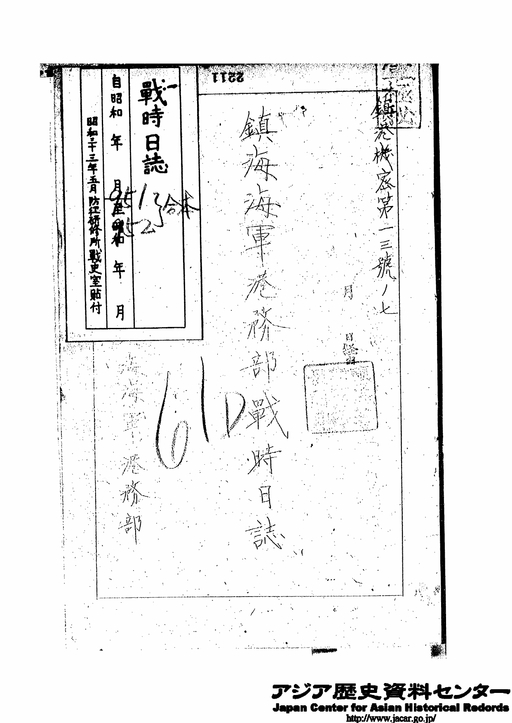 鎮港機密第一三號ノ七
月
鎮海海軍港務部戰時日誌
海軍港務部
61D
戰時日誌
自昭和 年 月
至昭和 年 月
合本
昭和三十三年五月防衛研修所戰史室貼付
2211
アジア歴史資料センター
Japan Center for Asian Historical Records
http://www.jacar.go.jp/